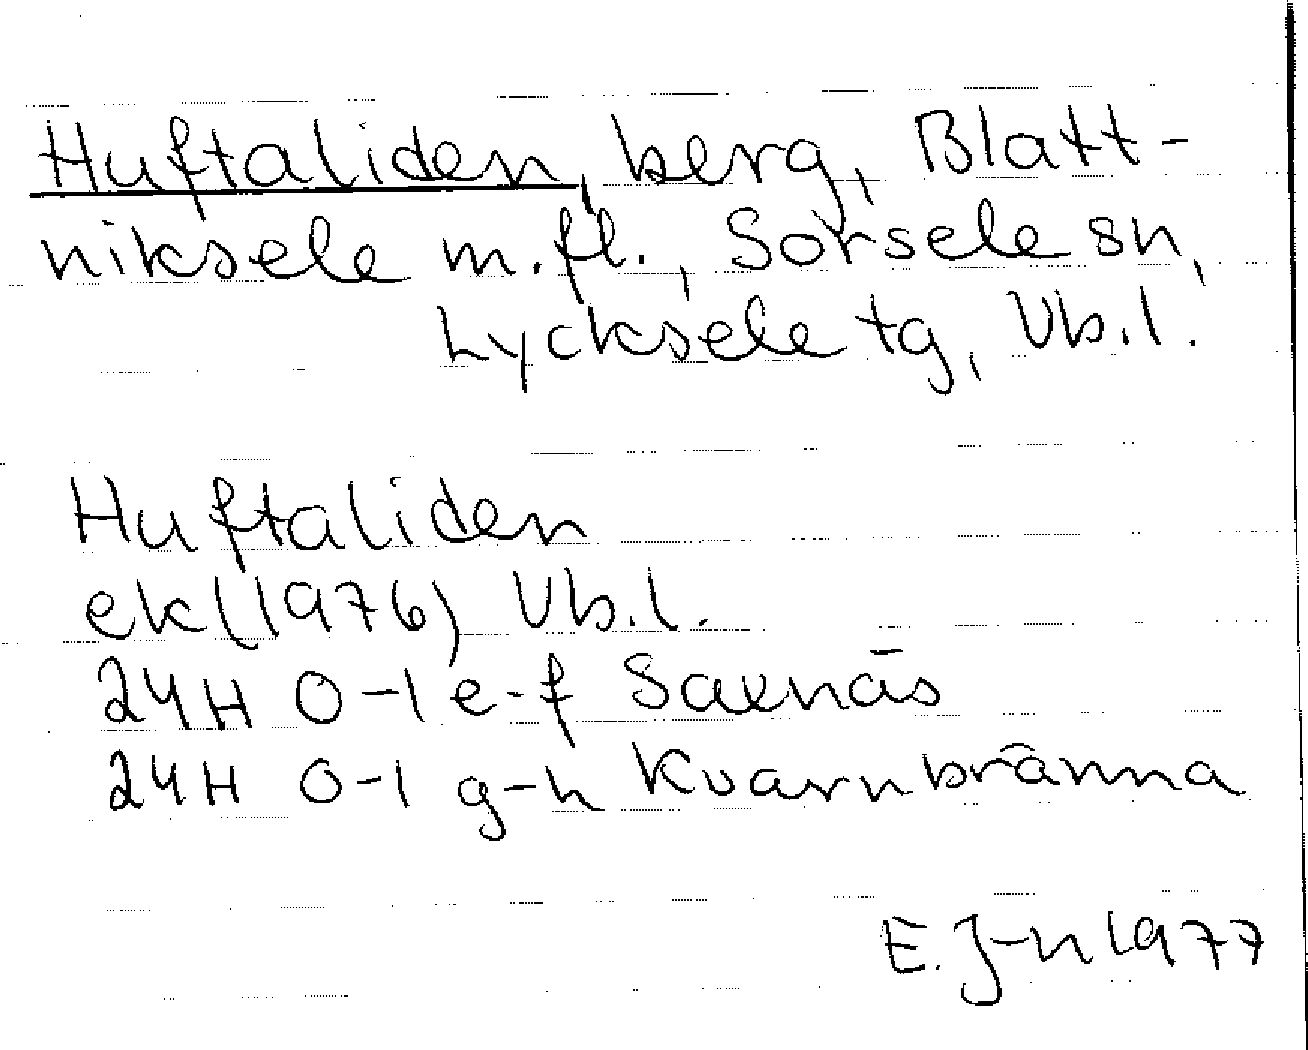 Huftaliden, berg, Blatt-
niksele m.fl., Sorsele sn,
Lycksele tg, Vb.l.
Huftaliden
ek (1976) Vb.l.
24H 0-1 e-f Saxnäs
24H 0-1 g-h Kvarnbränna
E. J-n 1977